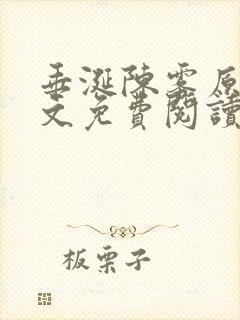 垂涎陳霧原
文免費閱讀
板栗子